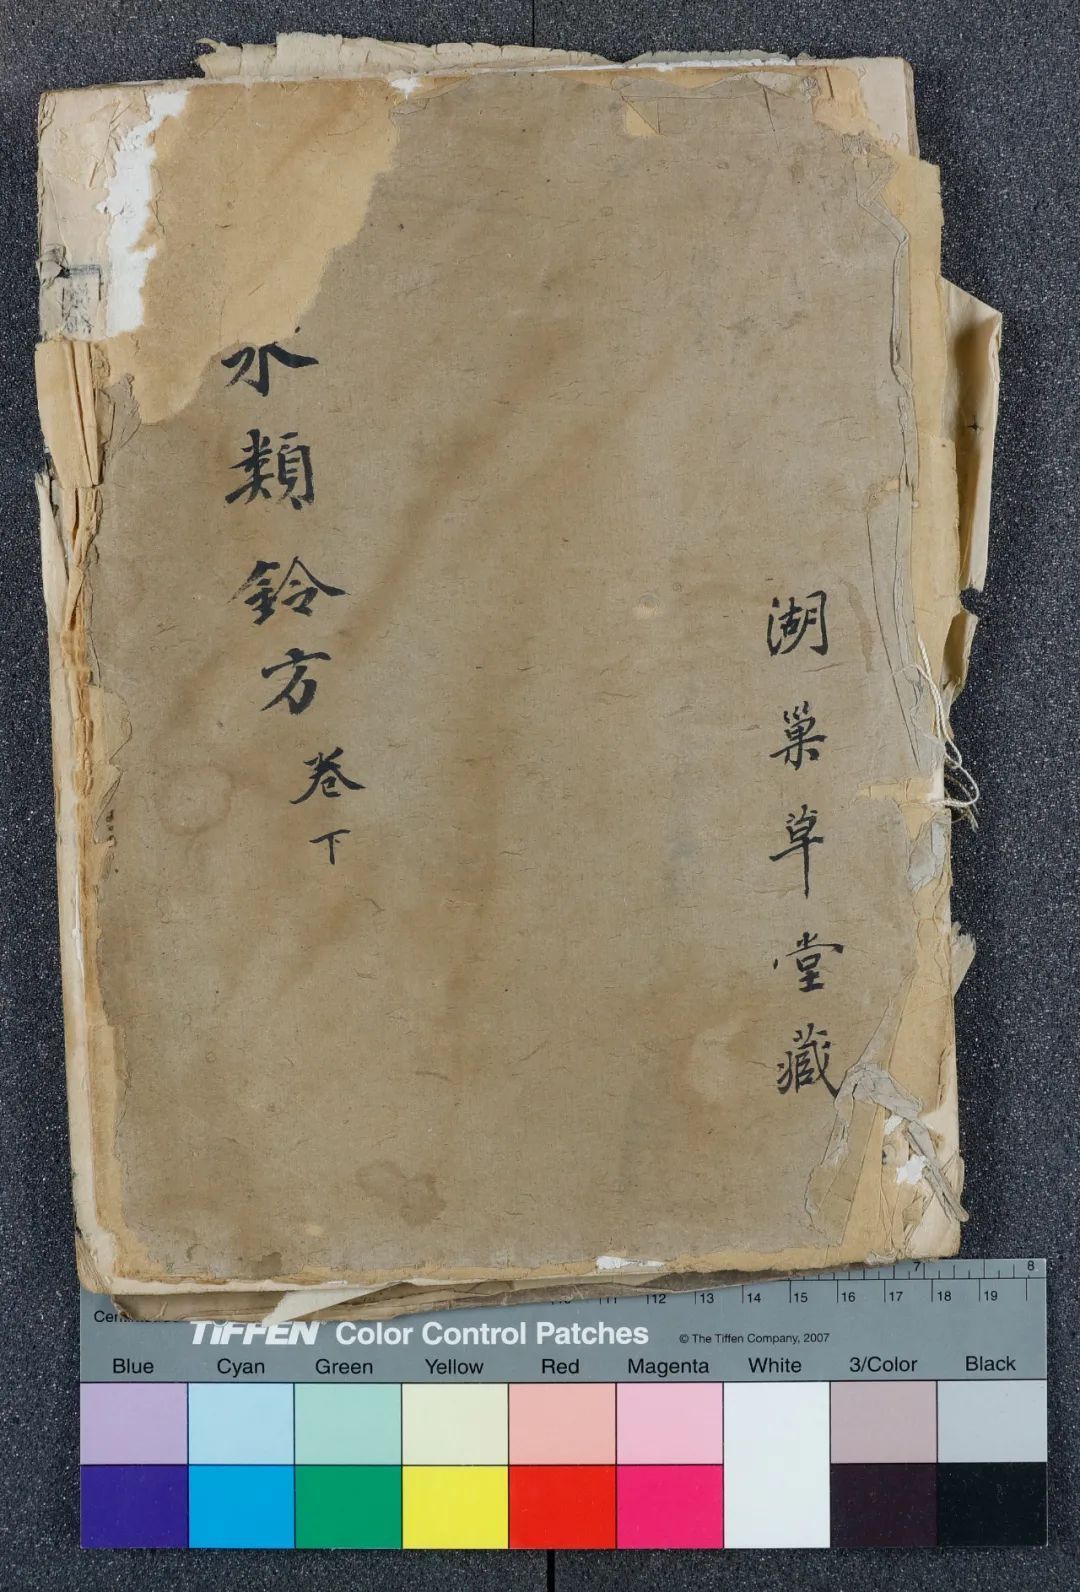 湖巢草堂藏
永類鈴方 卷下
7 8
12 13 14 15 16 17 18 19
TIFFEN Color Control Patches © The Tiffen Company, 2007
Blue Cyan Green Yellow Red Magenta White 3/Color Black